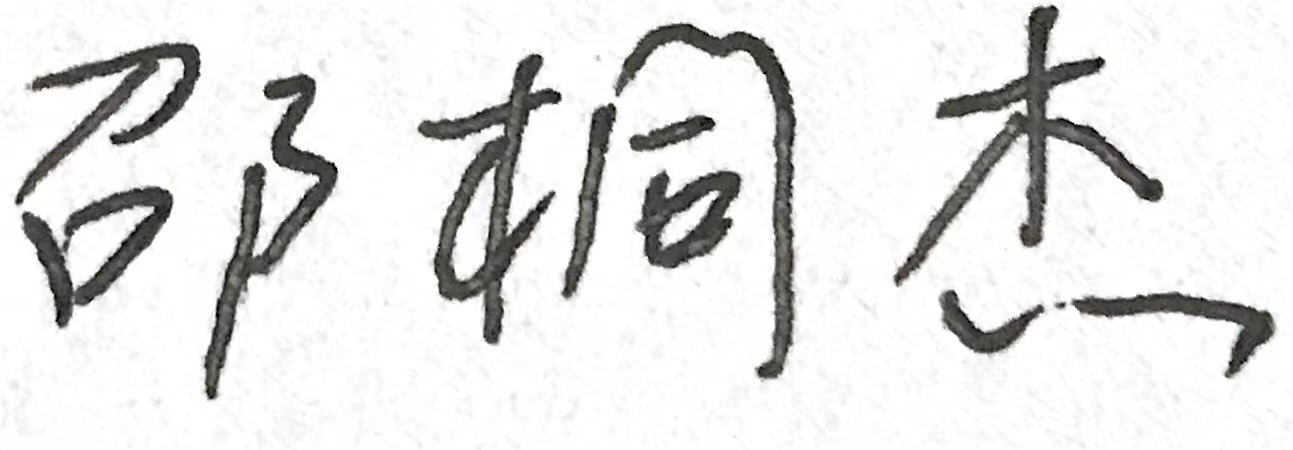 邵桐杰